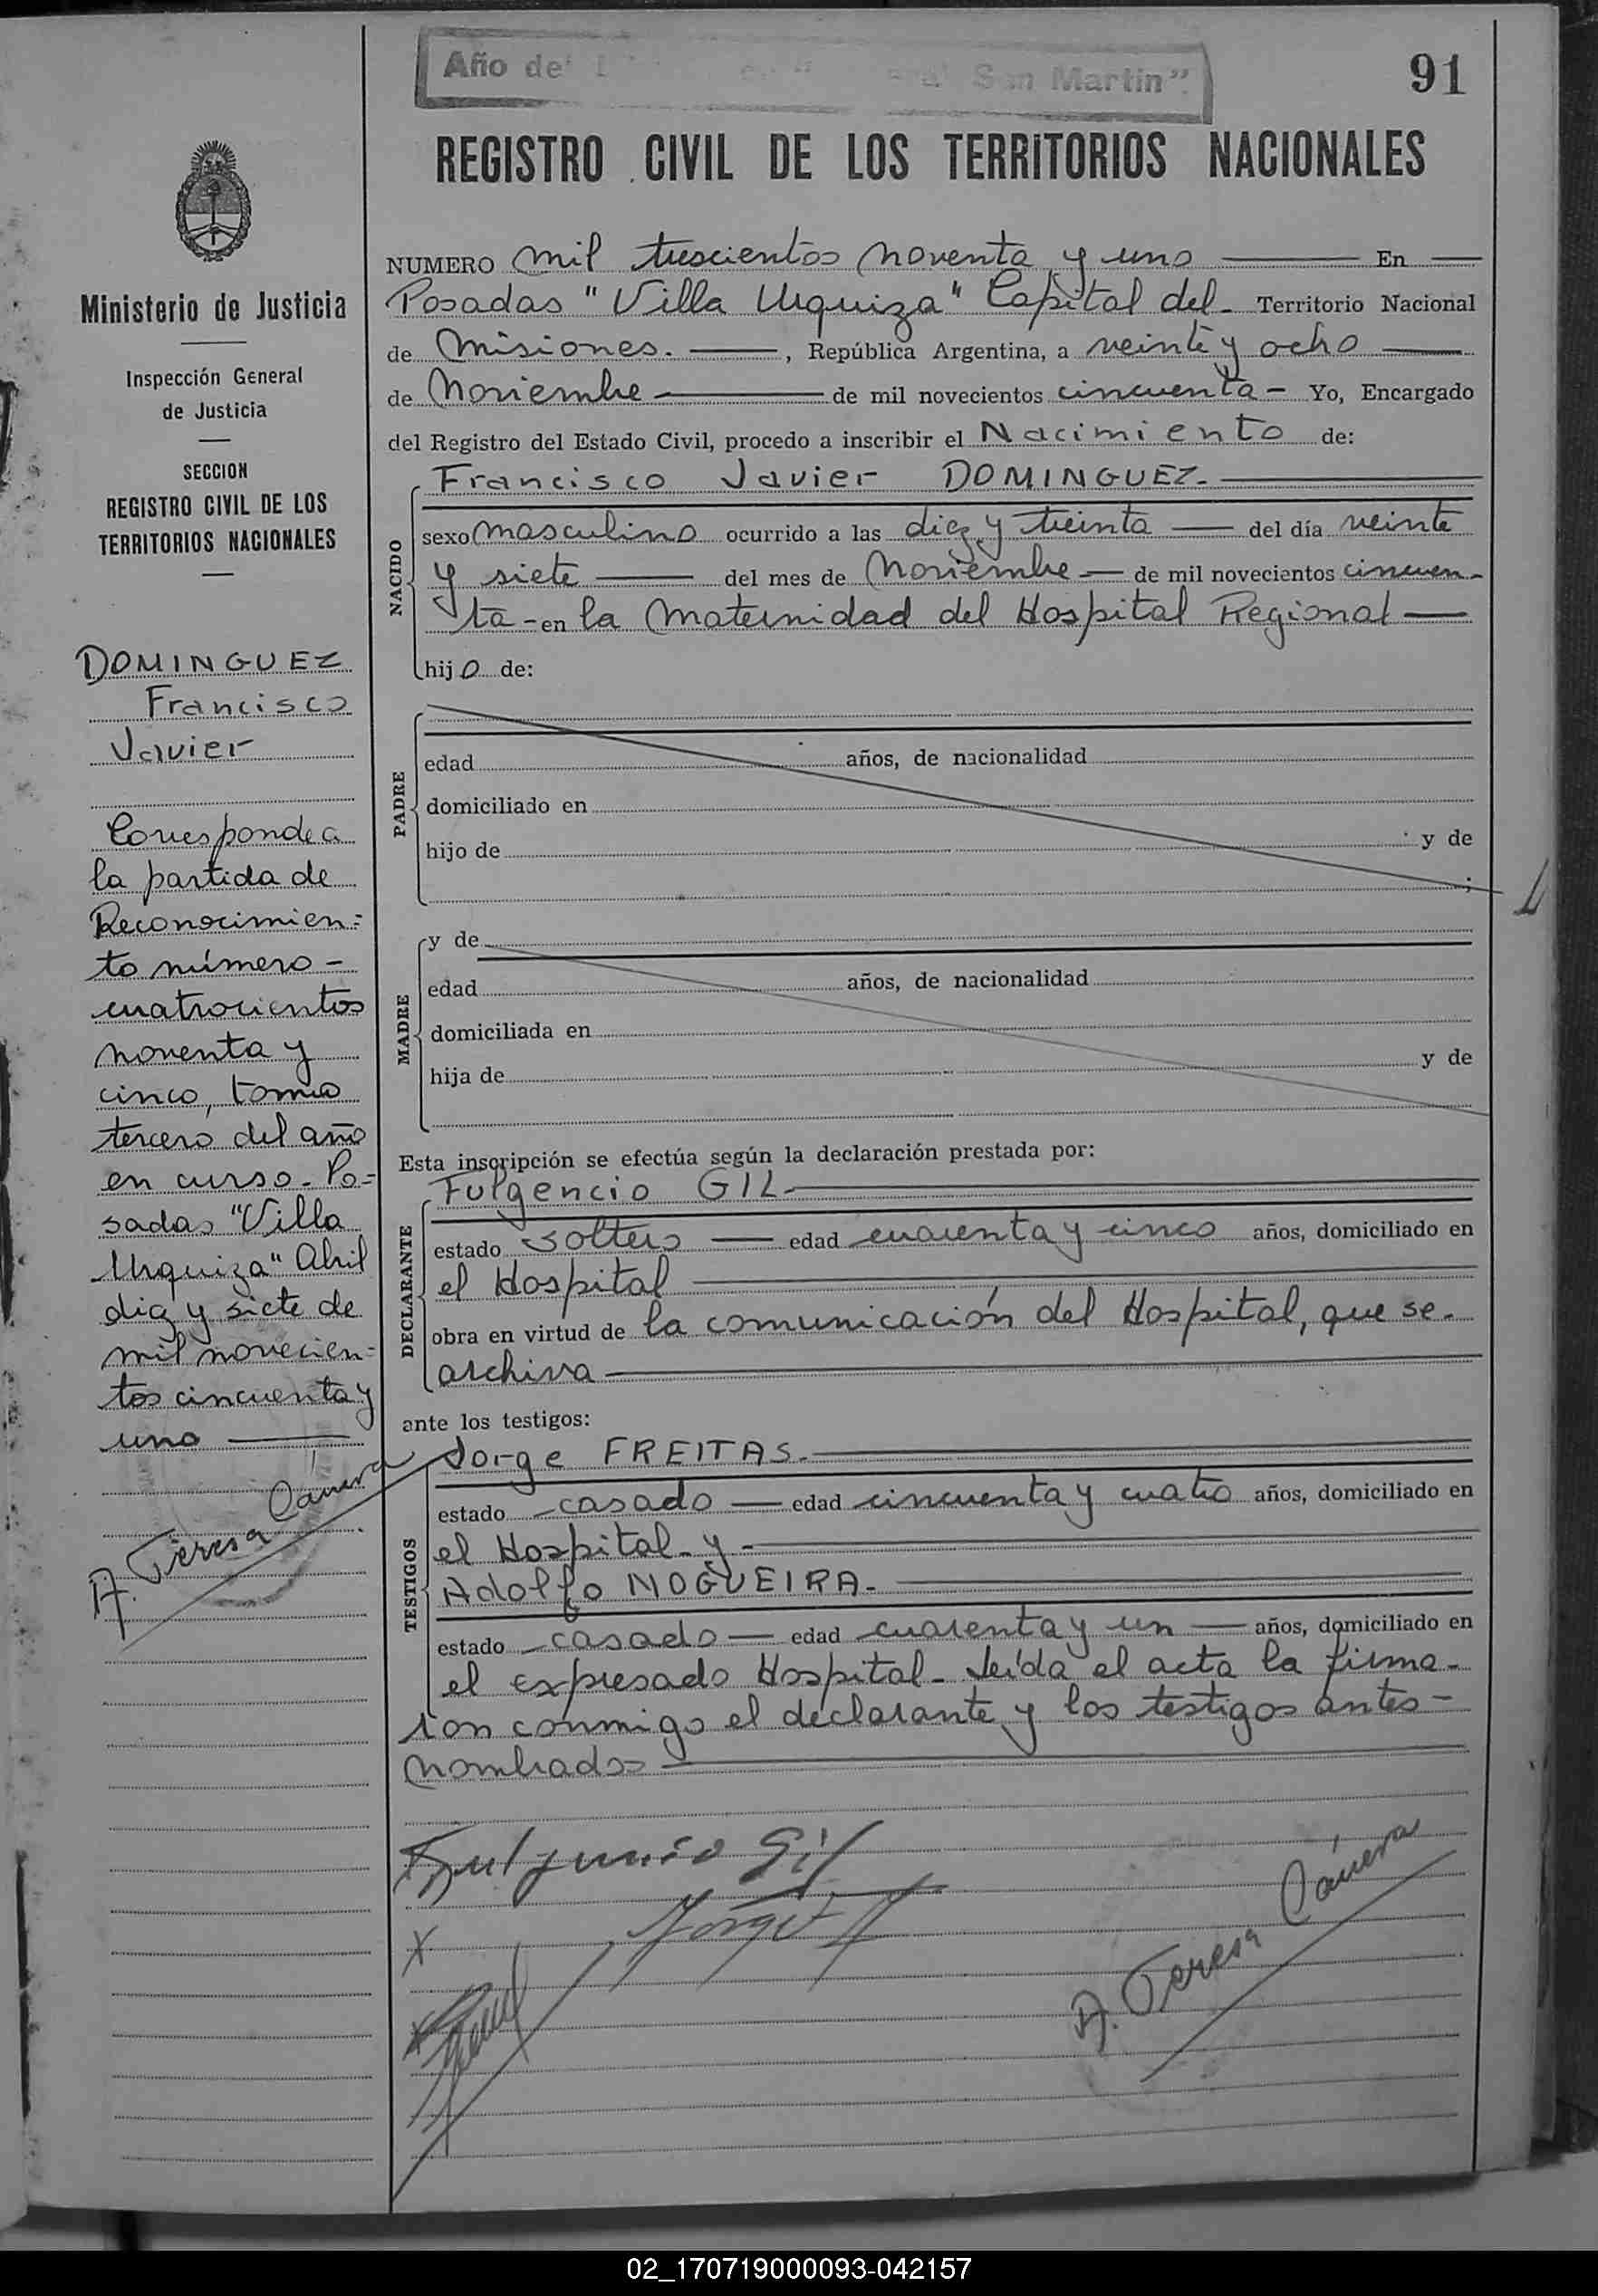 Año del San Martin".
91
REGISTRO CIVIL DE LOS TERRITORIOS NACIONALES
Ministerio de Justicia
Inspección General
de Justicia
SECCION
REGISTRO CIVIL DE LOS
TERRITORIOS NACIONALES
DOMINGUEZ
Francisco
Javier
Corresponde a
la partida de
Reconocimien=
to número -
cuatrocientos
noventa y
cinco, tomo
tercero del año
en curso - Po=
sadas "Villa
Urquiza" Abril
diez y siete de
mil novecien=
tos cincuenta y
uno
A. Teresa
NUMERO mil trescientos noventa y uno En
Posadas "Villa Urquiza" Capital del - Territorio Nacional
de Misiones. , República Argentina, a veinte y ocho
de Noviembre de mil novecientos cincuenta - Yo, Encargado
del Registro del Estado Civil, procedo a inscribir el Nacimiento de:
NACIDO
Francisco Javier DOMINGUEZ.
sexo masculino ocurrido a las diez y treinta del día veinte
y siete del mes de Noviembre de mil novecientos cincuen-
ta - en la Maternidad del Hospital Regional
hijo de:
PADRE
edad años, de nacionalidad
domiciliado en
hijo de y de
;
MADRE
y de
edad años, de nacionalidad
domiciliada en
hija de y de
Esta inscripción se efectúa según la declaración prestada por:
DECLARANTE
Fulgencio GIL
estado soltero edad cuarenta y cinco años, domiciliado en
el Hospital
obra en virtud de la comunicación del Hospital, que se -
archiva
ante los testigos:
TESTIGOS
Jorge FREITAS.
estado casado edad cincuenta y cuatro años, domiciliado en
el Hospital - y -
Adolfo NOGUEIRA.
estado casado edad cuarenta y un años, domiciliado en
el expresado Hospital - Leída el acta la firma-
ron conmigo el declarante y los testigos antes -
nombrados
Fulgencio Gil
A. Teresa
02_170719000093-042157